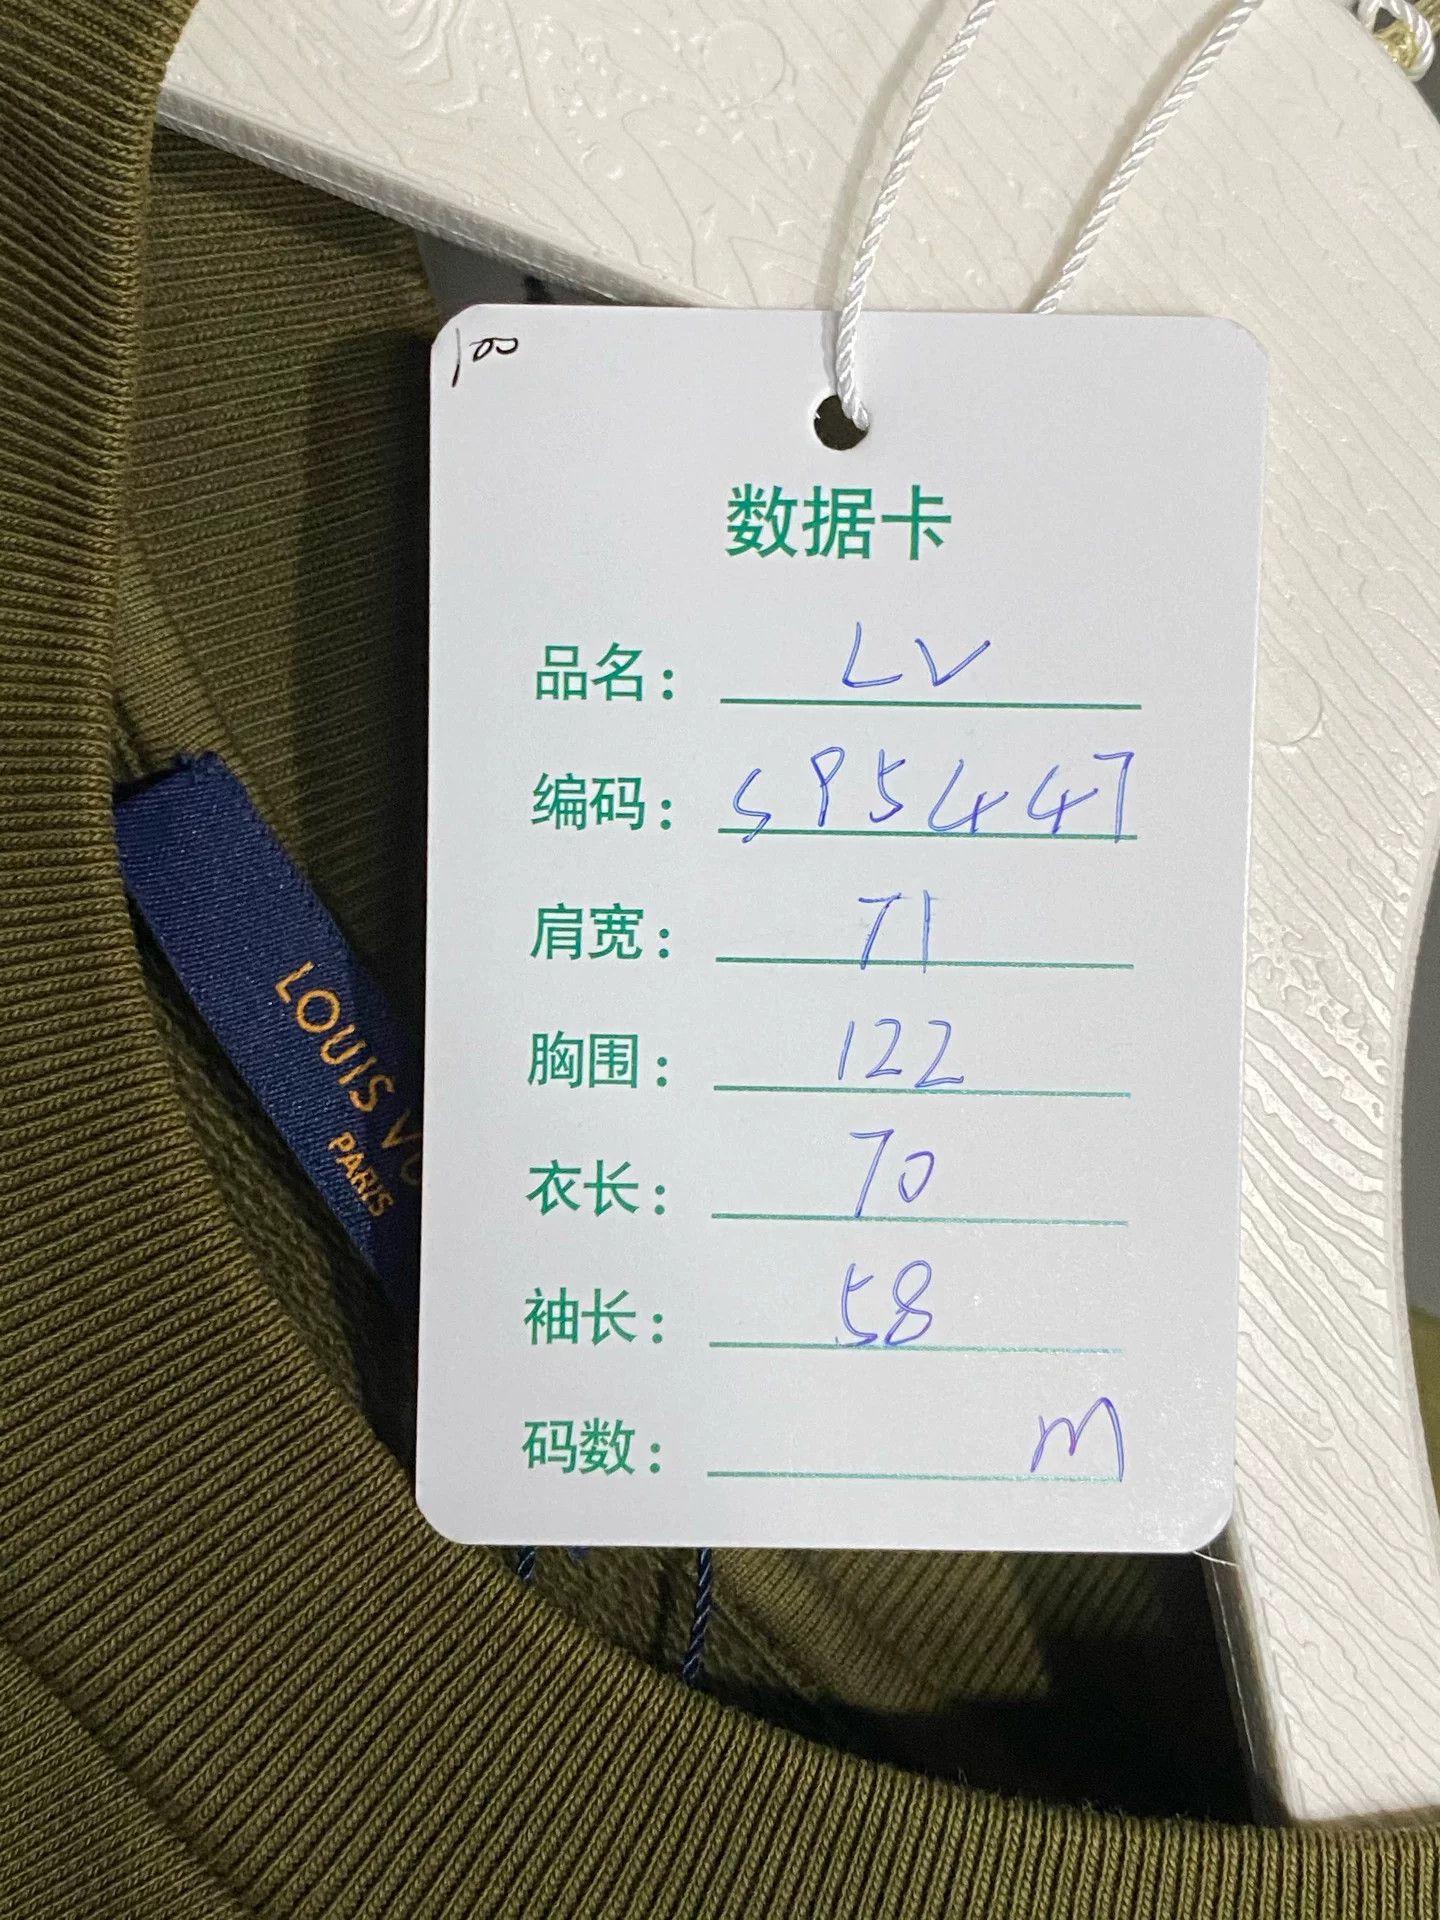 100
数据卡
品名: LV
编码: S95447
肩宽: 71
胸围: 122
衣长: 70
袖长: 58
码数: M
LOUIS VU
PARIS